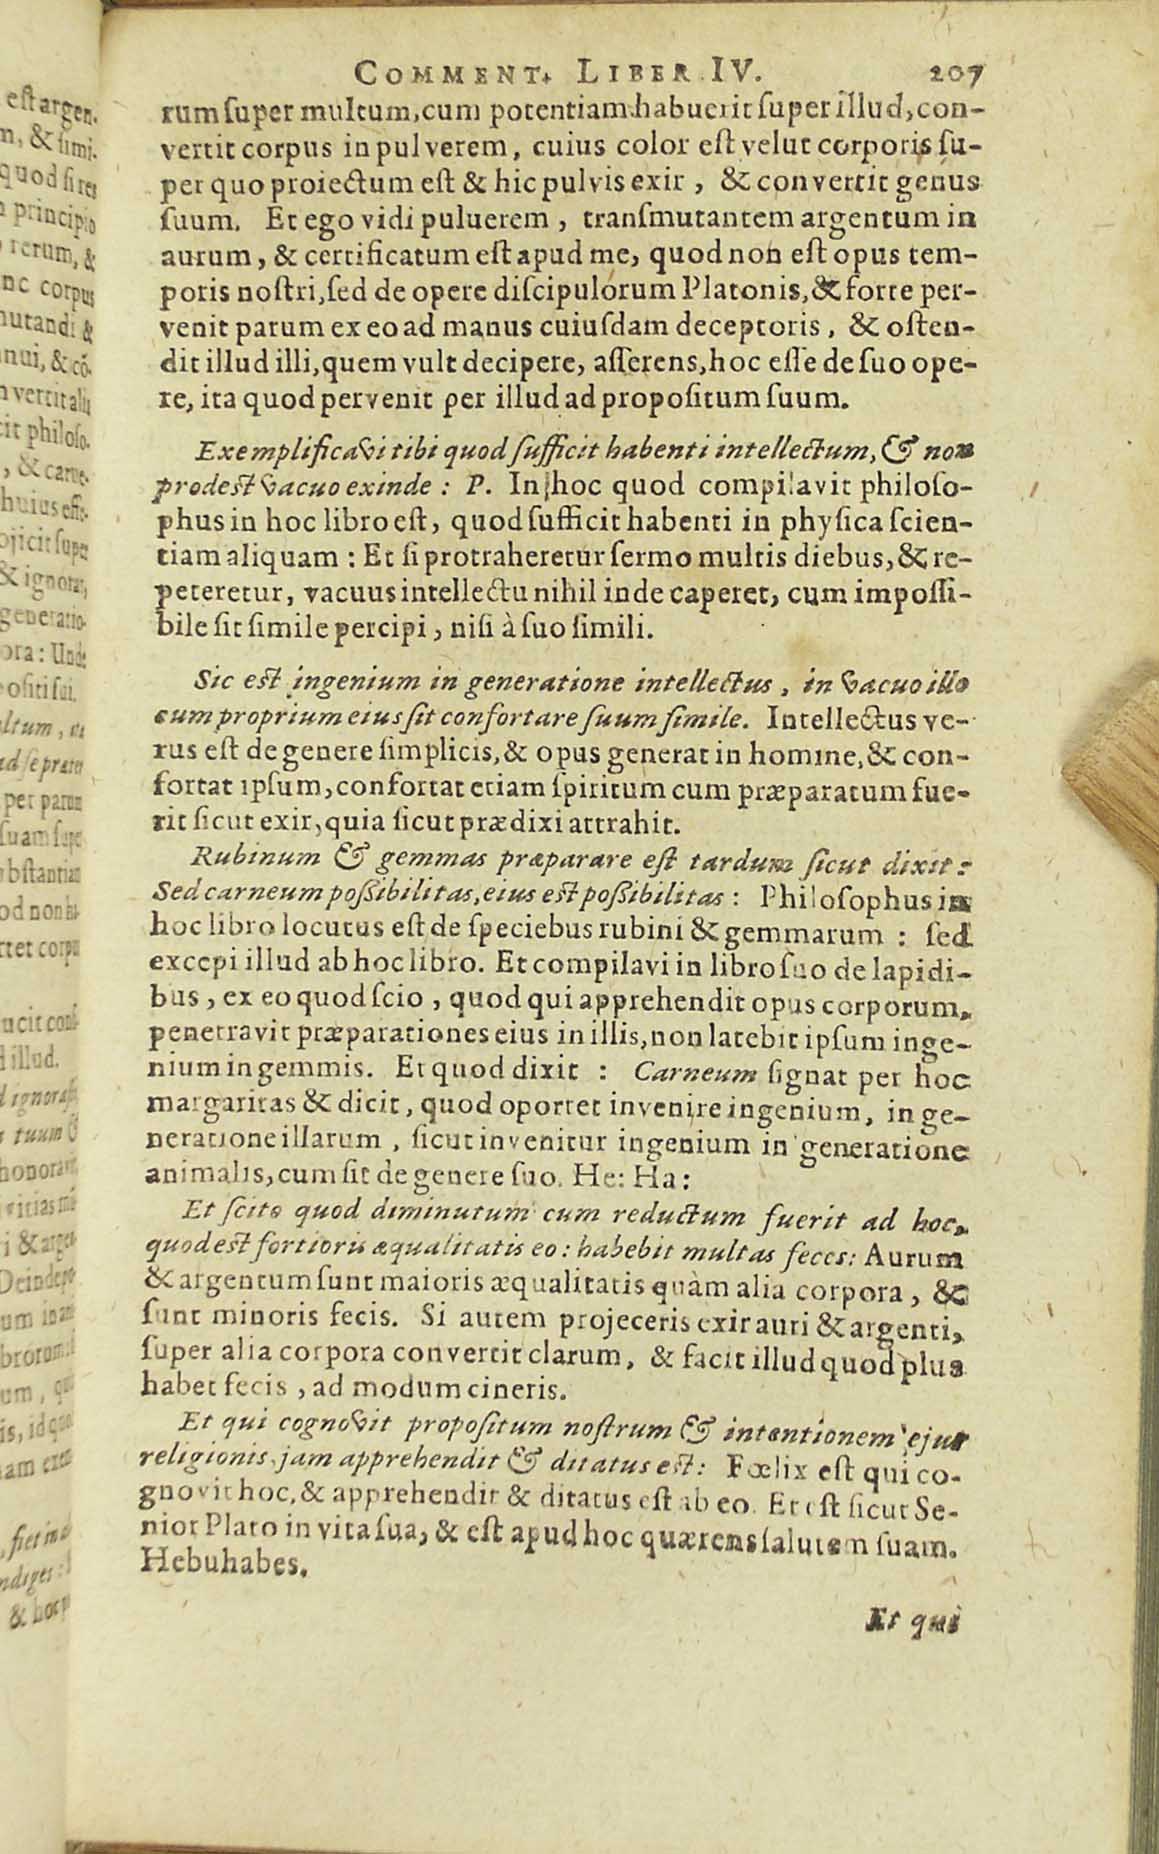 COMMENT. LIBER IV. 207
rum ſuper multum, cum potentiam habuerit ſuper illud, con-
vertit corpus in pulverem, cuius color eſt velut corporis ſu-
per quo proiectum eſt & hic pulvis exir, & convertit genus
ſuum. Et ego vidi puluerem, tranſmutantem argentum in
aurum, & certificatum eſt apud me, quod non eſt opus tem-
poris noſtri, ſed de opere diſcipulorum Platonis, & forte per-
venit parum ex eo ad manus cuiuſdam deceptoris, & oſten-
dit illud illi, quem vult decipere, aſſerens, hoc eſſe de ſuo ope-
re, ita quod pervenit per illud ad propoſitum ſuum.
Exemplificavi tibi quod ſufficit habenti intellectum, & non
prodeſt vacuo exinde: P. In hoc quod compilavit philoſo-
phus in hoc libro eſt, quod ſufficit habenti in phyſica ſcien-
tiam aliquam: Et ſi protraheretur ſermo multis diebus, & re-
peteretur, vacuus intellectu nihil inde caperet, cum impoſſi-
bile ſit ſimile percipi, niſi à ſuo ſimili.
Sic eſt ingenium in generatione intellectus, in vacuo illo
cum proprium eius ſit confortare ſuum ſimile. Intellectus ve-
rus eſt de genere ſimplicis, & opus generat in homine, & con-
fortat ipſum, confortat etiam ſpiritum cum præparatum fue-
rit ſicut exir, quia ſicut prædixi attrahit.
Rubinum & gemmas præparare eſt tardum ſicut dixit:
Sed carneum poſſibilitas, eius eſt poſſibilitas: Philoſophus in
hoc libro locutus eſt de ſpeciebus rubini & gemmarum: ſed
excepi illud ab hoc libro. Et compilavi in libro ſuo de lapidi-
bus, ex eo quod ſcio, quod qui apprehendit opus corporum,
penetravit præparationes eius in illis, non latebit ipſum inge-
nium in gemmis. Et quod dixit: Carneum ſignat per hoc
margaritas & dicit, quod oportet invenire ingenium, in ge-
neratione illarum, ſicut invenitur ingenium in generatione
animalis, cum ſit de genere ſuo. He: Ha:
Et ſcito quod diminutum cum reductum fuerit ad hoc,
quod eſt fortioris æqualitatis eo: habebit multas feces: Aurum
& argentum ſunt maioris æqualitatis quàm alia corpora, &
ſunt minoris fecis. Si autem projeceris exir auri & argenti,
ſuper alia corpora convertit clarum, & facit illud quod plus
habet fecis, ad modum cineris.
Et qui cognovit propoſitum noſtrum & intentionem ejus
religionis, jam apprehendit & ditatus eſt: Fœlix eſt qui co-
gnovit hoc, & apprehendit & ditatus eſt ab eo. Et eſt ſicut Se-
nior Plato in vita ſua, & eſt apud hoc quærens ſalutem ſuam.
Hebuhabes.
Et qui